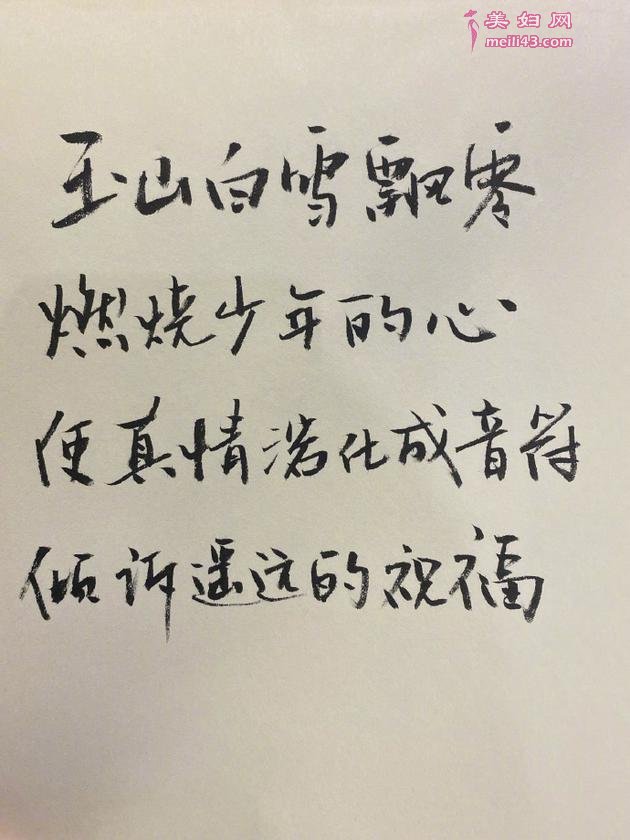 美妇网
meili43.com
玉山白雪飘零
燃烧少年的心
使真情溶化成音符
倾诉遥远的祝福